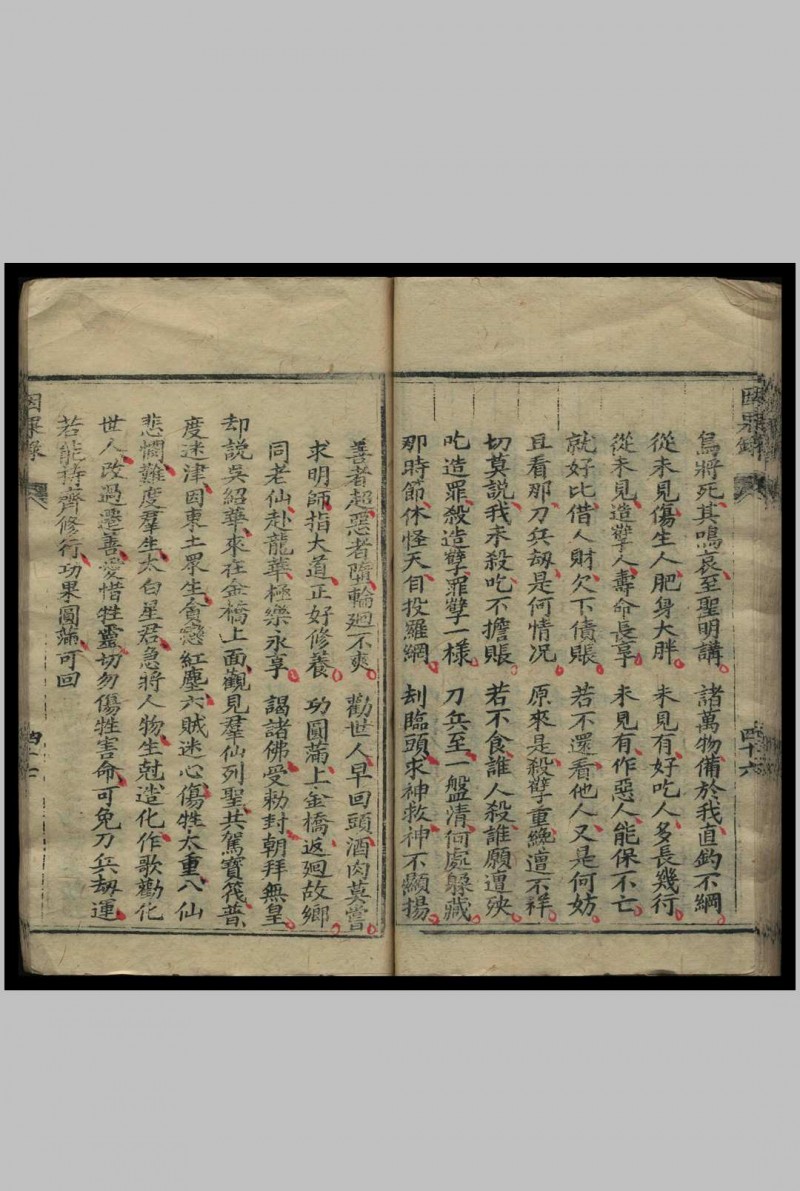 因果錄
四十六
鳥將死、其鳴哀、至聖明講。諸萬物、備於我、直鈎不綱。
從未見、傷生人、肥身大胖。未見有、好吃人、多長幾行。
從未見、造孽人、壽命長享。未見有、作惡人、能保不亡。
就好比、借人財、欠下債賬。若不還、看他人、又是何妨。
且看那、刀兵刼、是何情况。原來是、殺孽重、纔遭不祥。
切莫說、我未殺、吃不擔賬。若不食、誰人殺、誰願遭殃。
吃造罪、殺造孽、罪孽一樣。刀兵至、一盤清、何處躲藏。
那時節、休怪天、自投羅網。刼臨頭、求神救、神不顯揚。
善者超、惡者墮、輪廻不爽。勸世人、早回頭、酒肉莫嘗。
求明師、指大道、正好修養。功圓滿、上金橋、返廻故鄉。
同老仙、赴龍華、極樂永享。謁諸佛、受勅封、朝拜無皇。
却說吳紹華、來在金橋上面、觀見羣仙列聖、共駕寶筏、普
度迷津、因東土眾生、貪戀紅塵、六賊迷心、傷牲太重、八仙
悲憫、難度羣生、太白星君、急將人物生尅造化、作歌勸化
世人、改過遷善、愛惜牲靈、切勿傷牲害命、可免刀兵刼運、
若能持齋修行、功果圓滿、可回
因果錄
四十七